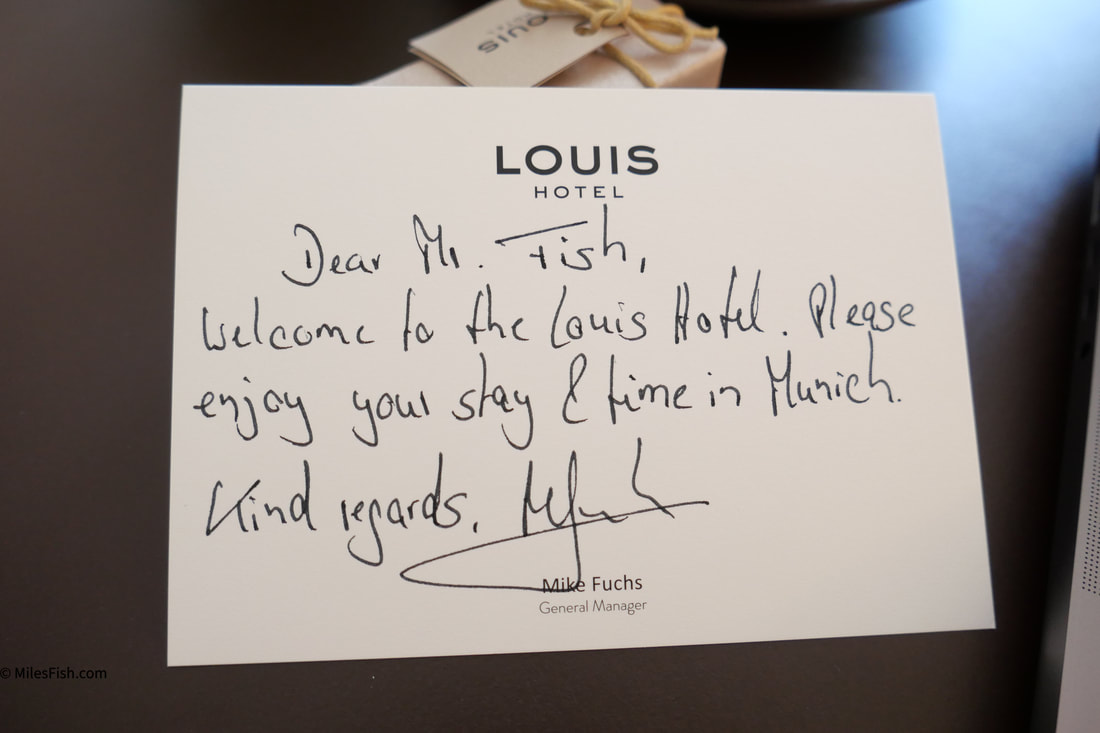 LOUIS
LOUIS
HOTEL
Dear Mr. Fish,
Welcome to the Louis Hotel. Please
enjoy your stay & time in Munich.
Kind regards,
Mike Fuchs
General Manager
© MilesFish.com